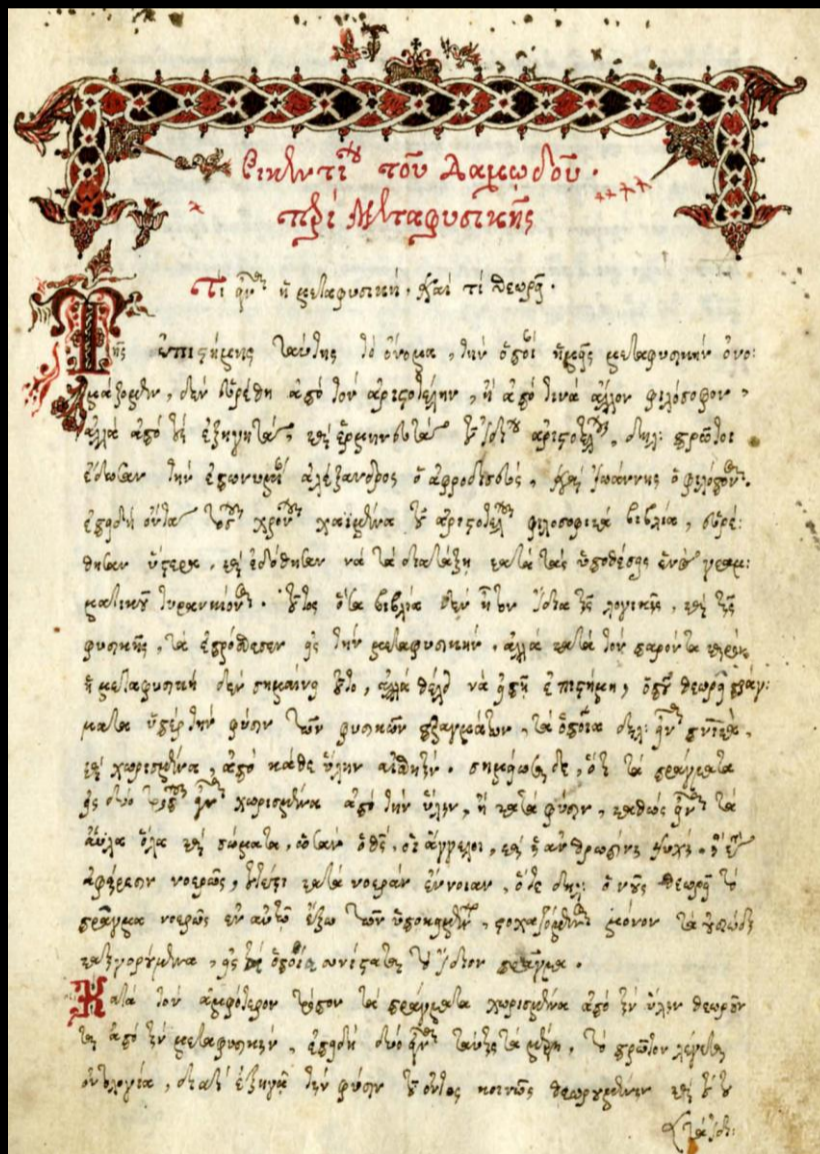 Βικεντίου τοῦ Δαμωδοῦ.
περὶ Μεταφυσικῆς
Τί εἶναι ἡ μεταφυσική, καὶ τί θεωρεῖ.
Τῆς ἐπιστήμης ταύτης τὸ ὄνομα, τὴν ὁποίαν ἡμεῖς μεταφυσικὴν ὀνο:
μάζομεν, δὲν εὑρέθη ἀπὸ τὸν ἀριστοτέλην, ἢ ἀπὸ τινὰ ἄλλον φιλόσοφον,
ἀλλὰ ἀπὸ τοὺς ἐξηγητάς, καὶ ἑρμηνευτὰς τοῦ ἰδίου ἀριστοτέλους, δηλ: πρῶτοι
ἔδωσαν τὴν ἐπωνυμίαν ἀλέξανδρος ὁ ἀφροδισεύς, καὶ Ἰωάννης ὁ φιλόπονος.
ἐπειδὴ ὄντας τοῦ χρόνου χαϊμένα τοῦ ἀριστοτέλους φιλοσοφικὰ βιβλία, εὑρέ:
θησαν ὕστερα, καὶ ἐδόθησαν νὰ τὰ διατάξῃ κατὰ τὰς ὑποθέσεις ἑνὸς γραμ:
ματικοῦ τυραννίωνος. οὗτος ὅσα βιβλία δὲν ἦτον ἴδια τῆς λογικῆς, καὶ τῆς
φυσικῆς, τὰ ἐπρόσθεσεν εἰς τὴν μεταφυσικήν. ἀλλὰ κατὰ τὸν παρόντα καιρὸν
ἡ μεταφυσικὴ δὲν σημαίνει τοῦτο, ἀλλὰ θέλει νὰ εἰπῇ ἐπιστήμη, ὁποῦ θεωρεῖ πράγ:
ματα ὑπὲρ τὴν φύσιν τῶν φυσικῶν πραγμάτων, τὰ ὁποῖα δηλ: εἶναι πνευματικά,
καὶ χωρισμένα, ἀπὸ κάθε ὕλην αἰσθητήν. σημείωσαι δέ, ὅτι τὰ πράγματα
εἰς δύο τρόπους εἶναι χωρισμένα ἀπὸ τὴν ὕλην, ἢ κατὰ φύσιν, καθὼς εἶναι τὰ
ἄϋλα ὅλα καὶ ἀσώματα, ὡσὰν ὁ θεός, οἱ ἄγγελοι, καὶ ἡ ἀνθρωπίνη ψυχή, ἢ
ἀφαίρεσιν νοερῶς, κατὰ νοερὰν ἔννοιαν, ὅτε δηλ: ὁ νοῦς θεωρεῖ τὸ
πρᾶγμα νοερῶς ἐν αὐτῷ ἔξω τῶν ὑποκειμένων, στοχαζόμενος μόνον τὰ οὐσιώδη
κατηγορούμενα, εἰς τὰ ὁποῖα συνίσταται τὸ ἴδιον πρᾶγμα.
Κατὰ τὸν ἀμφότερον τρόπον τὰ πράγματα χωρισμένα ἀπὸ τὴν ὕλην θεωροῦν
ται ἀπὸ τὴν μεταφυσικήν, ἐπειδὴ δύο εἶναι ταύτης τὰ μέρη, τὸ πρῶτον λέγεται
ὀντολογία, διατὶ ἐξηγᾷ τὴν φύσιν τοῦ ὄντος κοινῶς θεωρουμένου καὶ